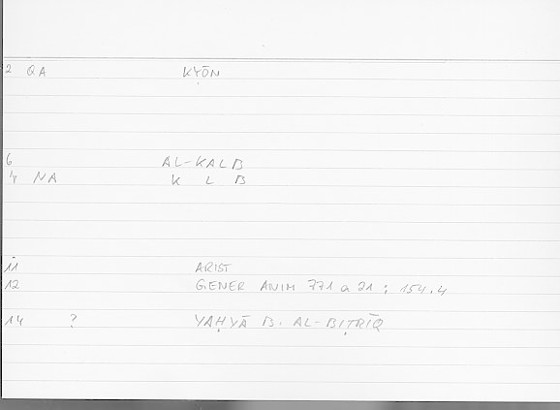 2 QA KYŌN
6 AL-KALB
4 NA K L B
11 ARIST
12 GENER ANIM 771 a 21 ; 154.4
14 ? YAḤYĀ B. AL-BIṬRĪQ